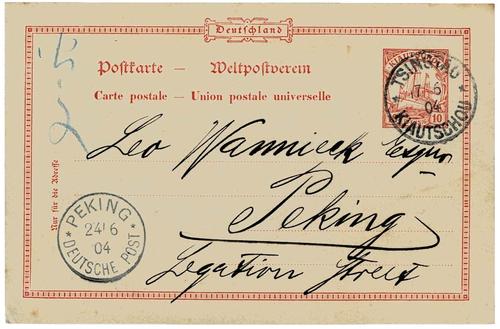 Deutschland
Postkarte — Weltpostverein
Carte postale — Union postale universelle
KIAUTSCHOU
10
TSINGTAU
04
KIAUTSCHOU
Nur für die Adresse
Leo Wannieck Esqre
Peking
Legation Street
PEKING
24/6
04
DEUTSCHE POST